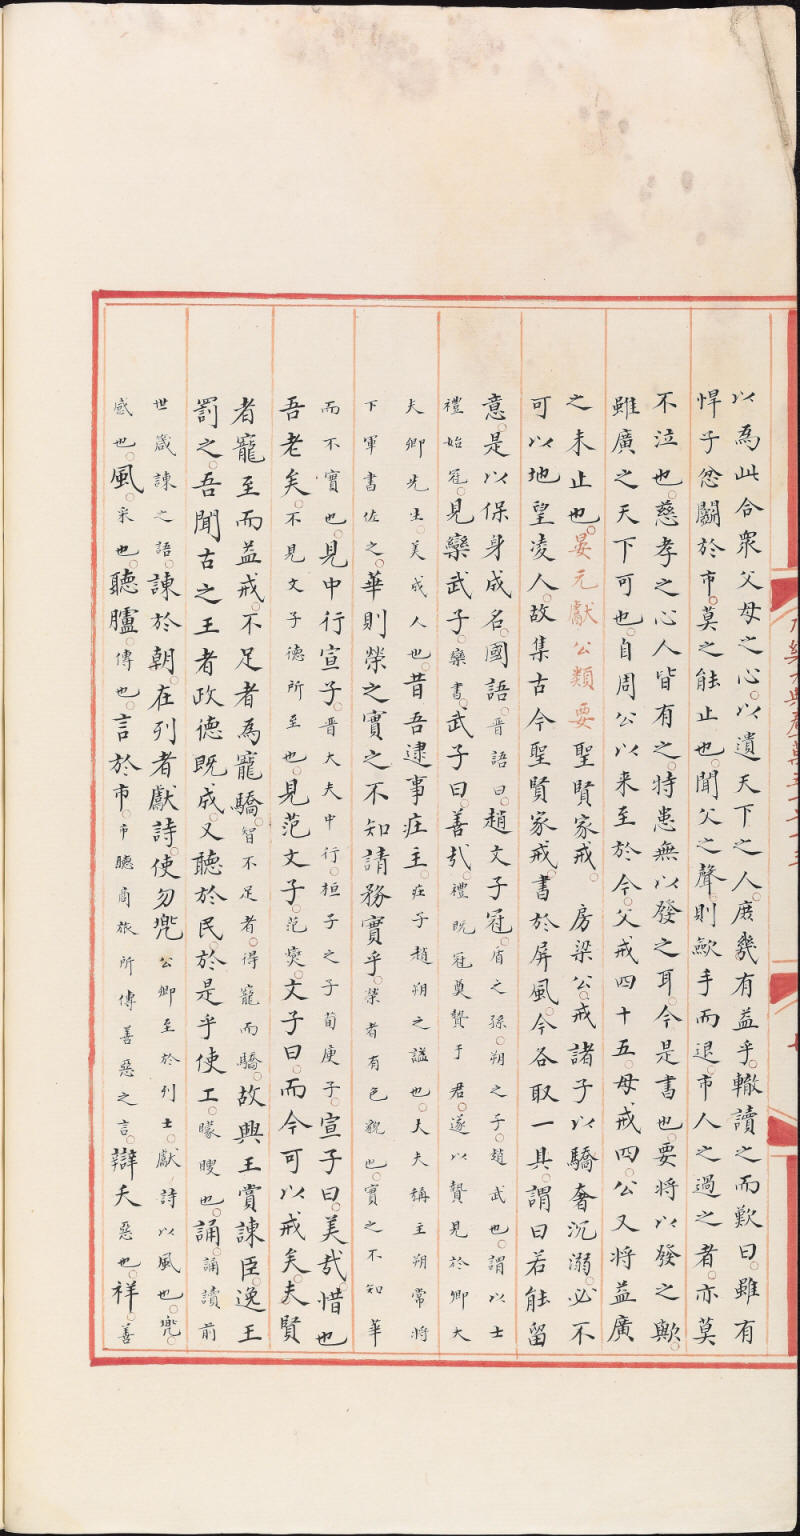 以爲此合衆父母之心。以遺天下之人。庶幾有益乎。轍讀之而歎曰。雖有
悍子忿鬬於市。莫之能止也。聞父之聲。則歛手而退。市人之過之者。亦莫
不泣也。慈孝之心人皆有之。特患無以發之耳。今是書也。要將以發之歟。
雖廣之天下可也。自周公以來至於今。父戒四十五。母戒四。公又將益廣
之未止也。晏元獻公類要聖賢家戒。 房梁公。戒諸子以驕奢沉溺。必不
可以地望凌人。故集古今聖賢家戒。書於屏風。今各取一具。謂曰若能留
意。是以保身成名。國語。晉語曰。趙文子冠。盾之孫。朔之子。趙武也。謂以士
禮始冠。見欒武子。欒書。武子曰。善哉。禮既冠奠贄于君。遂以贄見於卿大
夫卿先生。美成人也。昔吾逮事莊主。莊子趙朔之謚也。大夫稱主朔常將
下軍書佐之。華則榮之實之不知請務實乎。榮者有色貌也。實之不知華
而不實也。見中行宣子。晉大夫中行。桓子之子荀庚子。宣子曰。美哉。惜也
吾老矣。不見文子德所至也。見范文子。范燮。文子曰。而今可以戒矣。夫賢
者寵至而益戒。不足者爲寵驕。智不足者。得寵而驕。故興王賞諫臣。逸王
罰之。吾聞古之王者政德既成。又聽於民。於是乎使工。矇瞍也。誦。誦讀前
世箴諫之語。諫於朝。在列者獻詩。使勿兜公卿至於列士。獻詩以風也。兜。
惑也。風。采也。聽臚。傳也。言於市。市聽商旅所傳善惡之言。辯夭惡也。祥。善